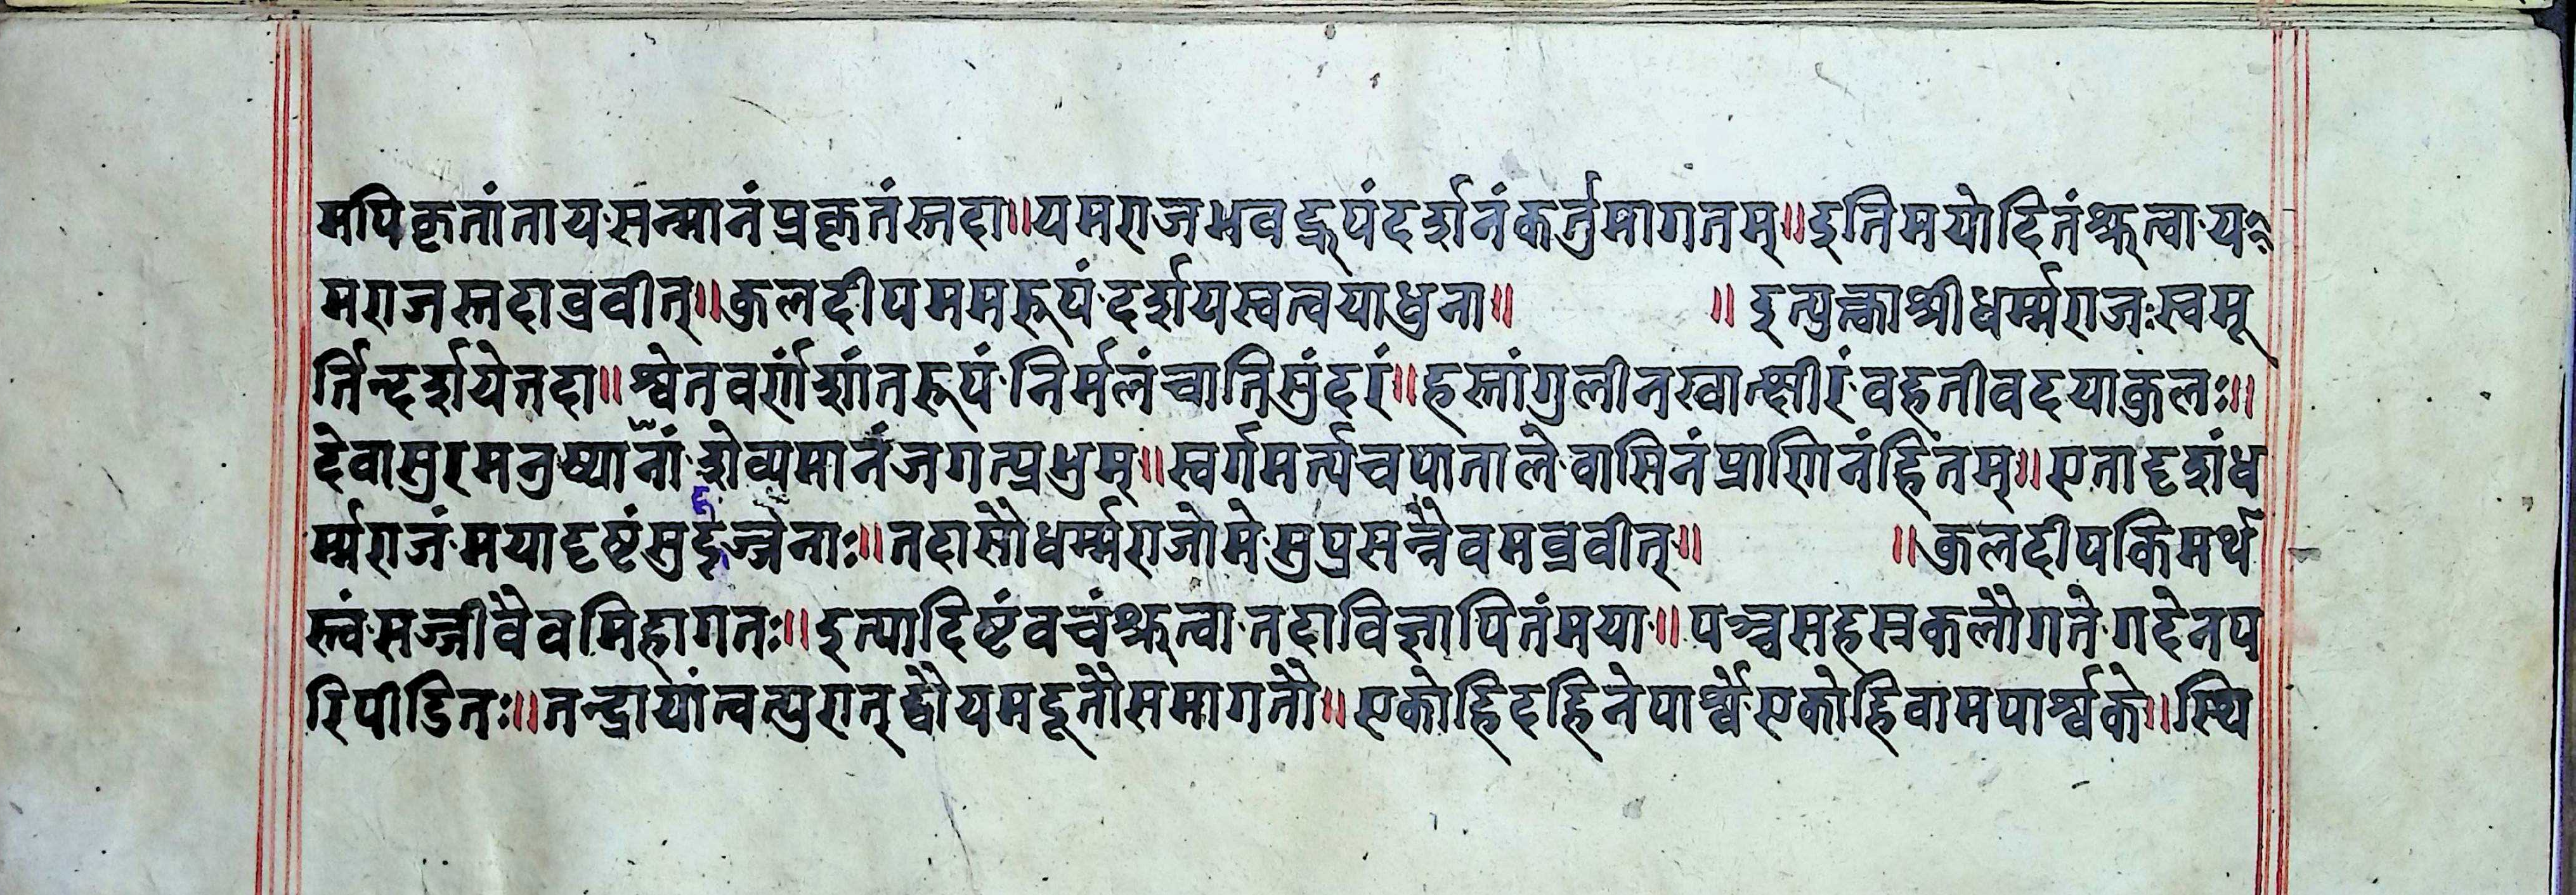 मपिकृतांतायसन्मानंप्रकृतंस्तदा॥यमराजभवद्रूपंदर्शनंकर्तुमागतम्॥इतिमयोदितंश्रुत्वाय
मराजस्तदाब्रवीत्॥कुलदीपममरूपंदर्शयस्वत्वयाधुना॥ ॥इत्युक्त्वाश्रीधर्म्मराजःस्वमू
र्तिन्दर्शयेत्तदा॥श्वेतवर्णंशांतरूपंनिर्मलंचातिसुंदरं॥हस्तांगुलीनखात्क्षीरंवहतीवदयाकुलः॥
देवासुरमनुष्यानांशेव्यमानंजगत्प्रभुम्॥स्वर्गमर्त्यचपातालेवासिनंप्राणिनंहितम्॥एतादृशंध
र्म्मराजंमयादृष्टंसुदुर्ज्जनाः॥तदासौधर्म्मराजोमेसुप्रसन्नैवमब्रवीत्॥ ॥कुलदीपकिमर्थ
स्त्वंसज्जीवैवमिहागतः॥इत्यादिष्टंवचंश्रुत्वातदाविज्ञापितंमया॥पञ्चसहस्रकलौगतेगदेनप
रिपीडितः॥तन्द्रायांत्वत्पुरात्द्वौयमदूतौसमागतौ॥एकोहिदहिनेपार्श्वेएकोहिवामपार्श्वके॥स्थि